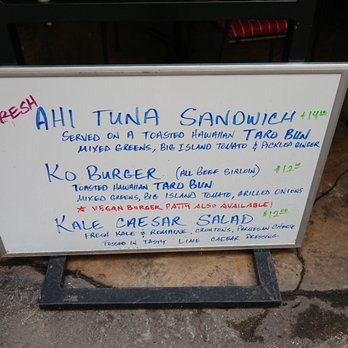 FRESH
AHI TUNA SANDWICH $14.00
SERVED ON A TOASTED HAWAIIAN TARO BUN
MIXED GREENS, BIG ISLAND TOMATO & PICKLED GINGER
KO BURGER (ALL BEEF SIRLOIN) $12.00
TOASTED HAWAIIAN TARO BUN
MIXED GREENS, BIG ISLAND TOMATO, GRILLED ONIONS
* VEGAN BURGER PATTY ALSO AVAILABLE!
KALE CAESAR SALAD $12.00
FRESH KALE & ROMAINE, CROUTONS, PARMESAN CHEESE
TOSSED IN TASTY LIME CAESAR DRESSING